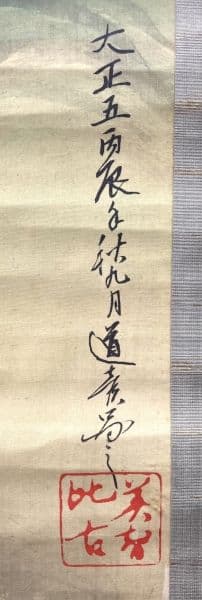 大正五丙辰年秋九月道彦写之
美智
比古